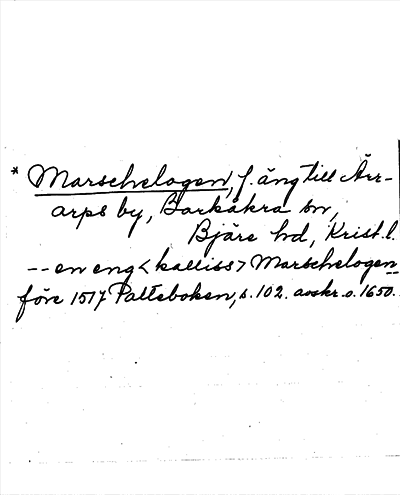 * Marschelogen, f. äng till Ärr-
arps by, Barkåkra sn,
Bjäre hd, Krist.l.
-- en eng <kalliss> Marschelogen --
före 1517 Palteboken, s. 102. avskr. o. 1650.